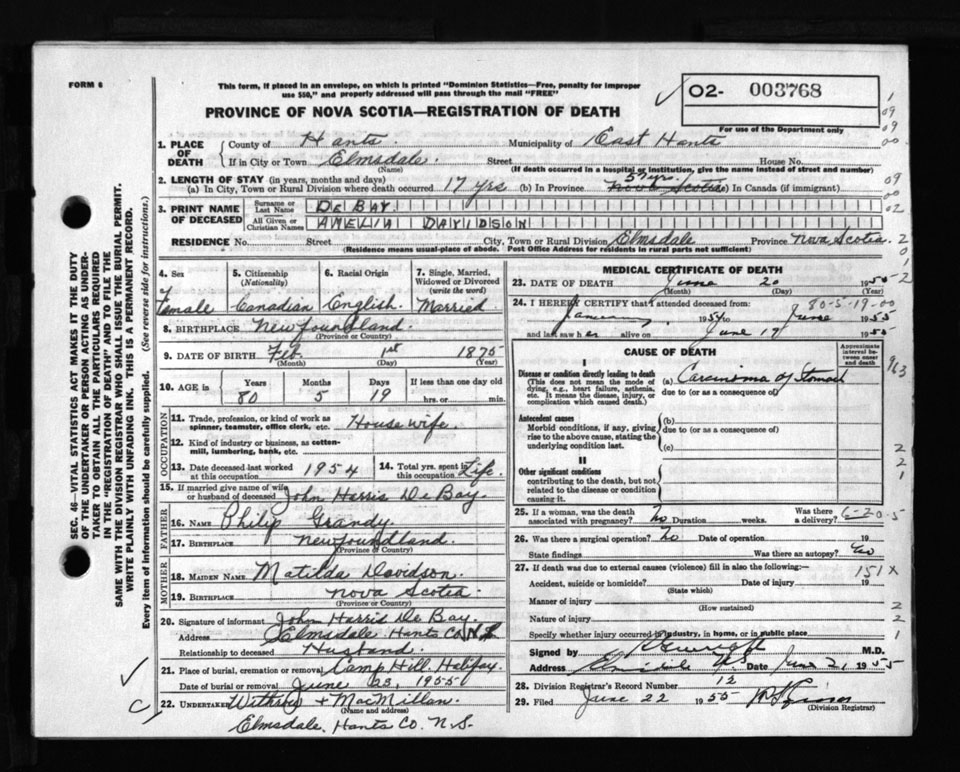 FORM 8
This form, if placed in an envelope, on which is printed "Dominion Statistics—Free, penalty for improper
use $50," and properly addressed will pass through the mail "FREE"
PROVINCE OF NOVA SCOTIA—REGISTRATION OF DEATH
O2- 003768
For use of the Department only
1. PLACE OF DEATH
County of Hants. Municipality of East Hants
If in City or Town Elmsdale. Street House No.
(Name) (If death occurred in a hospital or institution, give the name instead of street and number)
2. LENGTH OF STAY (in years, months and days)
(a) In City, Town or Rural Division where death occurred 17 yrs (b) In Province 57 yrs. Nova Scotia (c) In Canada (if immigrant)
3. PRINT NAME OF DECEASED
Surname or Last Name DE BAY.
All Given or Christian Names AMELIA DAVIDSON
RESIDENCE No. Street City, Town or Rural Division Elmsdale Province Nova Scotia.
(Residence means usual place of abode. Post Office Address for residents in rural parts not sufficient)
4. Sex
Female
5. Citizenship
(Nationality)
Canadian
6. Racial Origin
English.
7. Single, Married,
Widowed or Divorced
(write the word)
Married
8. BIRTHPLACE Newfoundland.
(Province or Country)
9. DATE OF BIRTH Feb. 1st 1875
(Month) (Day) (Year)
10. AGE in Years Months Days If less than one day old
80 5 19 hrs. or min.
OCCUPATION
11. Trade, profession, or kind of work as
spinner, teamster, office clerk, etc. House wife.
12. Kind of industry or business, as cotten-
mill, lumbering, bank, etc.
13. Date deceased last worked
at this occupation 1954
14. Total yrs. spent in
this occupation Life.
15. If married give name of wife
or husband of deceased John Harris De Bay.
FATHER
16. NAME Philip Grandy.
17. BIRTHPLACE Newfoundland.
(Province or Country)
MOTHER
18. MAIDEN NAME Matilda Davidson.
19. BIRTHPLACE Nova Scotia.
(Province or Country)
20. Signature of informant John Harris De Bay.
Address Elmsdale. Hants Co. N.S.
Relationship to deceased Husband.
21. Place of burial, cremation or removal Camp Hill. Halifax.
Date of burial or removal June 23, 1955
22. UNDERTAKER Withrow & MacMillan.
(Name and address)
Elmsdale, Hants Co. N.S.
MEDICAL CERTIFICATE OF DEATH
23. DATE OF DEATH June 20 1955
(Month) (Day) (Year)
80-5-19-00
24. I HEREBY CERTIFY that I attended deceased from:
January, 1954 to June 1955
and last saw her alive on June 19 1955
CAUSE OF DEATH
Approximate
interval between
onset
and death
I
Disease or condition directly leading to death
(This does not mean the mode of
dying, e.g., heart failure, asthenia,
etc. It means the disease, injury, or
complication which caused death.)
(a) Carcinoma of Stomach
due to (or as a consequence of)
Antecedent causes
Morbid conditions, if any, giving
rise to the above cause, stating the
underlying condition last.
(b)
due to (or as a consequence of)
(c)
II
Other significant conditions
contributing to the death, but not
related to the disease or condition
causing it.
25. If a woman, was the death
associated with pregnancy? No Duration weeks.
Was there
a delivery? 6-20.5
26. Was there a surgical operation? No Date of operation 19
State findings Was there an autopsy? No
27. If death was due to external causes (violence) fill in also the following:—
151X
Accident, suicide or homicide? Date of injury 19
(State which)
Manner of injury
(How sustained)
Nature of injury
Specify whether injury occurred in industry, in home, or in public place
Signed by M.D.
Address Date June 21, 1955
28. Division Registrar's Record Number 12
29. Filed June 22 1955
(Division Registrar)
SEC. 46—VITAL STATISTICS ACT MAKES IT THE DUTY
OF THE UNDERTAKER OR PERSON ACTING AS UNDER-
TAKER TO OBTAIN ALL THE PARTICULARS REQUIRED
IN THE "REGISTRATION OF DEATH" AND TO FILE THE
SAME WITH THE DIVISION REGISTRAR WHO SHALL ISSUE THE BURIAL PERMIT.
WRITE PLAINLY WITH UNFADING INK. THIS IS A PERMANENT RECORD.
Every item of information should be carefully supplied. (See reverse side for instructions.)
1
09
09
00
09
00
02
2
0
1
2
963
2
2
1
2
1